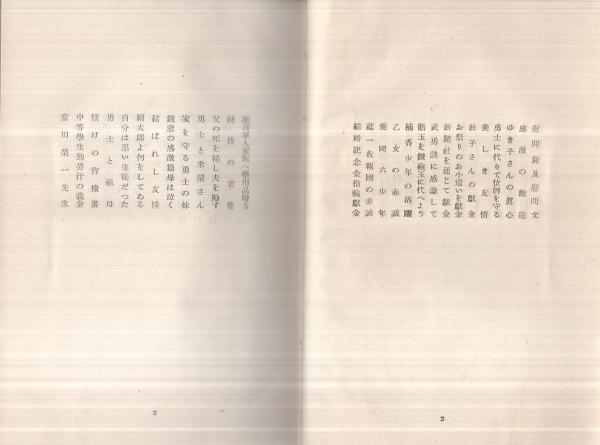 慰問袋及慰問文
感激の歓送
ゆき子さんの眞心
勇士に代りて位牌を守る
美しき友情
秋子さんの献金
新聞社を通じて献金
お祭りのお小遣いを献金
武勇談に感激して
飴玉を鐵砲玉に代へよう
楠香少年の活躍
乙女の赤誠
愛國六少年
疏一枚報國の赤誠
結婚記念金指輪献金
2
應召軍人家族へ藥用品贈る
銃後の老婆
父の死を秘し夫を勵す
勇士と米屋さん
家を守る勇士の妹
鐵窓の感激篤母は泣く
結ばれし友情
紹太郎よ何をしてゐる
自分は悪い生徒だつた
勇士と祖母
情けの肖像畫
中等學生勤勞汗の義金
富田榮一先生
3